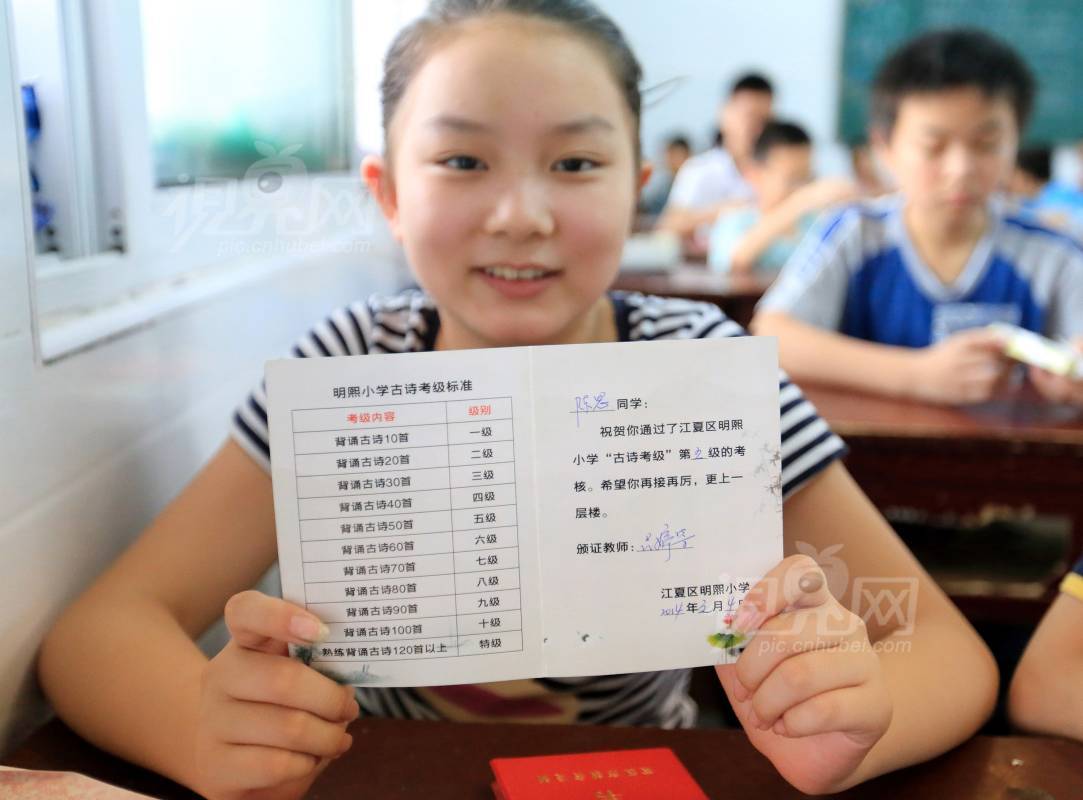 明熙小学古诗考级标准
考级内容 级别
背诵古诗10首 一级
背诵古诗20首 二级
背诵古诗30首 三级
背诵古诗40首 四级
背诵古诗50首 五级
背诵古诗60首 六级
背诵古诗70首 七级
背诵古诗80首 八级
背诵古诗90首 九级
背诵古诗100首 十级
熟练背诵古诗120首以上 特级
陈思同学：
祝贺你通过了江夏区明熙
小学“古诗考级”第九级的考
核。希望你再接再厉，更上一
层楼。
颁证教师：
江夏区明熙小学
2014年 月
视界网
pic.cnhubei.com
视界网
pic.cnhubei.com